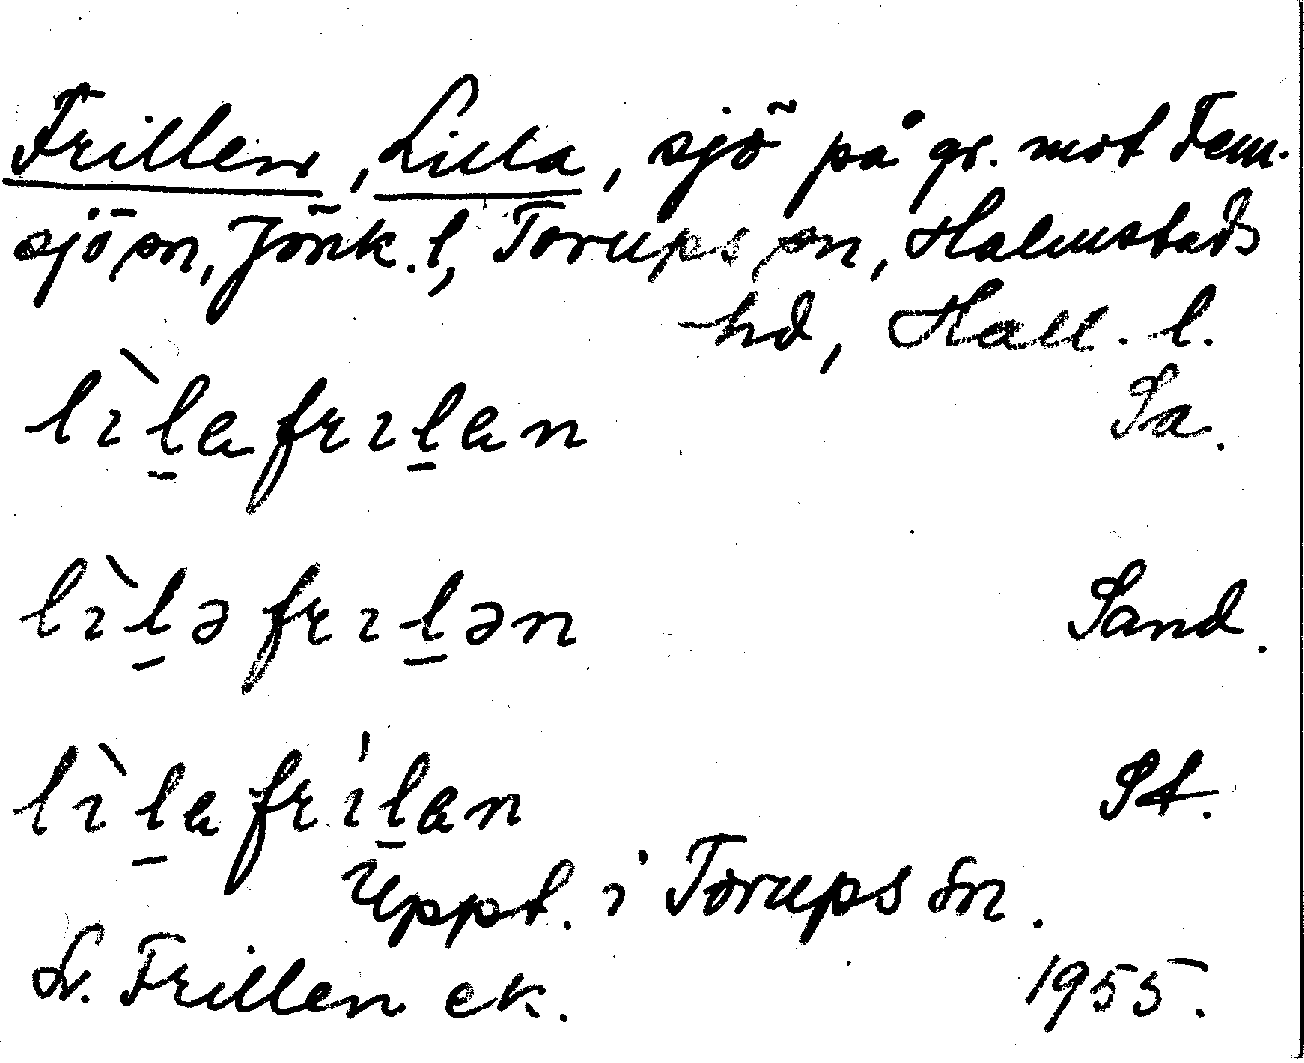 Frillen, Lilla, sjö på gr. mot Fem-
sjö sn, Jönk. l, Torups sn, Halmstads
hd, Hall. l.
lı̀l̲a frıl̲an Sa.
lı̀l̲ə frıl̲ən Sand.
lı̀l̲a frı́l̲an St.
Uppt. i Torups sn.
Lr. Frillen ek. 1955.